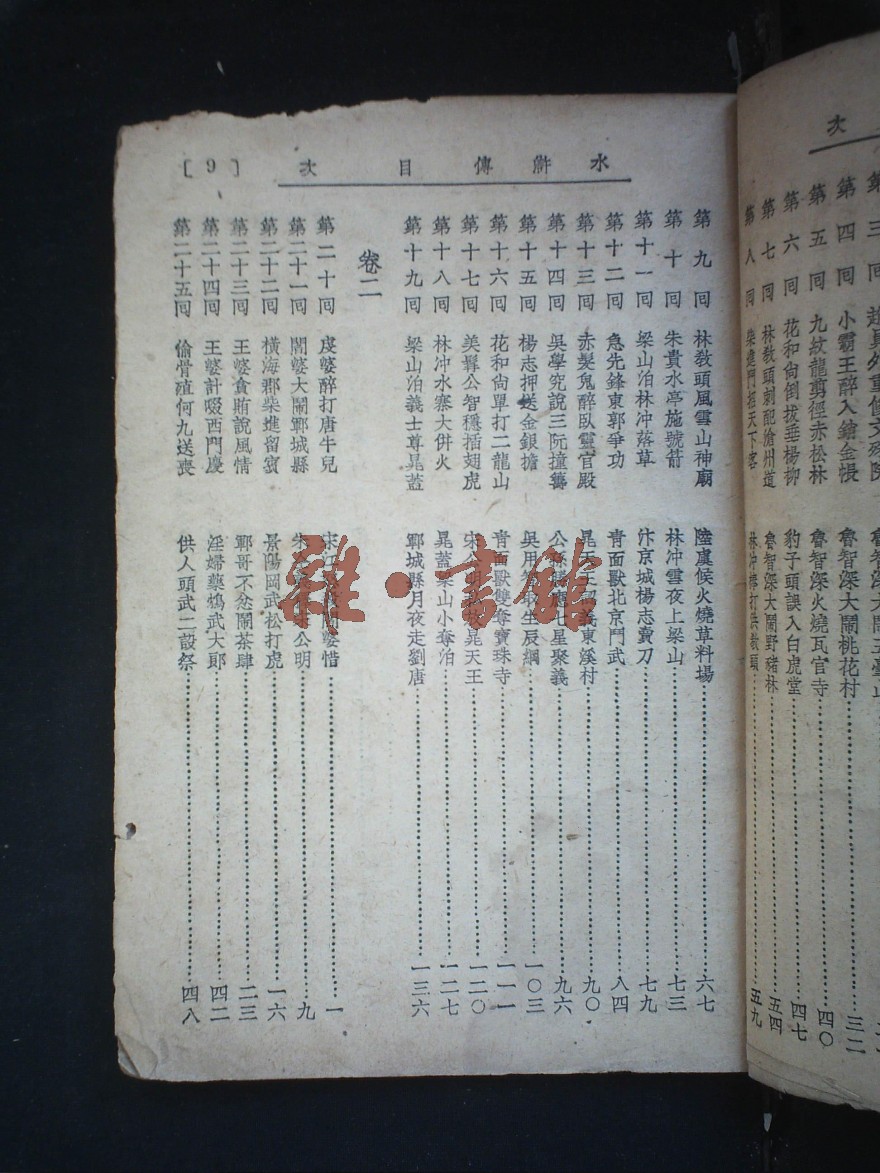 次
第三回
第四回 小霸王醉入銷金帳 魯智深大鬧桃花村 三二
第五回 九紋龍剪徑赤松林 魯智深火燒瓦官寺 四〇
第六回 花和尙倒拔垂楊柳 豹子頭誤入白虎堂 四七
第七回 林敎頭刺配滄州道 魯智深大鬧野豬林 五四
第八回 柴進門招天下客 林冲棒打洪敎頭 五九
水滸傳目次 [9]
第九回 林敎頭風雲山神廟 陸虞候火燒草料場 六七
第十回 朱貴水亭施號箭 林冲雲夜上梁山 七三
第十一回 梁山泊林冲落草 汴京城楊志賣刀 七九
第十二回 急先鋒東郭爭功 靑面獸北京鬥武 八四
第十三回 赤髮鬼醉臥靈官殿 晁天王認義東溪村 九〇
第十四回 吳學究說三阮撞籌 公孫勝應七星聚義 九六
第十五回 楊志押送金銀擔 吳用智取生辰綱 一〇三
第十六回 花和尙單打二龍山 靑面獸雙奪寶珠寺 一一一
第十七回 美髯公智穩插翅虎 宋公明私放晁天王 一二〇
第十八回 林冲水寨大併火 晁蓋梁山小奪泊 一二七
第十九回 梁山泊義士尊晁蓋 鄆城縣月夜走劉唐 一三六
卷二
第二十回 虔婆醉打唐牛兒 宋江 婆惜 一
第二十一回 閻婆大鬧鄆城縣 朱 公明 九
第二十二回 橫海郡柴進留賓 景陽岡武松打虎 一六
第二十三回 王婆貪賄說風情 鄆哥不忿鬧茶肆 二三
第二十四回 王婆計啜西門慶 淫婦藥鴆武大郞 四二
第二十五回 偸骨殖何九送喪 供人頭武二設祭 四八
雜·書館